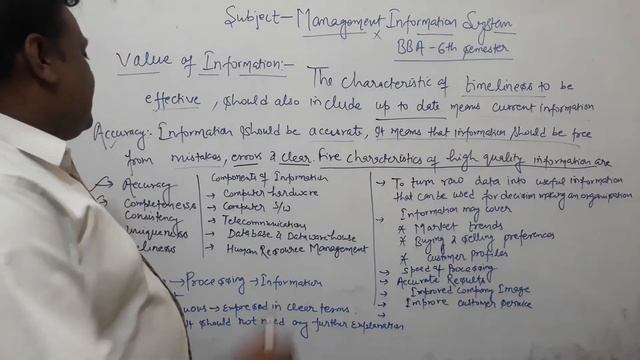 Subject - Management Information System
BBA - 6th semester
Value of Information:-
The characteristic of timeliness to be
effective, should also include up to date means current information
Accuracy: Information should be accurate, It means that information should be free
from mistakes, errors & clear. Five characteristics of high quality information are
Accuracy
Completeness
Consistency
Uniqueness
Timeliness
Components of Information
→ Computer hardware
→ Computer S/W
→ Telecommunication
→ Database & Datawarehouse
→ Human Resource Management
→ To turn raw data into useful information
that can be used for decision making an organization
→ Information may cover
* Market trends
* Buying & selling preferences
* customer profiles
→ Speed of Processing
→ Accurate Results
→ Improved Company Image
→ Improve customer service
→
→ Processing → Information
uous → Expressed in clear terms.
It should not need any further Explanation